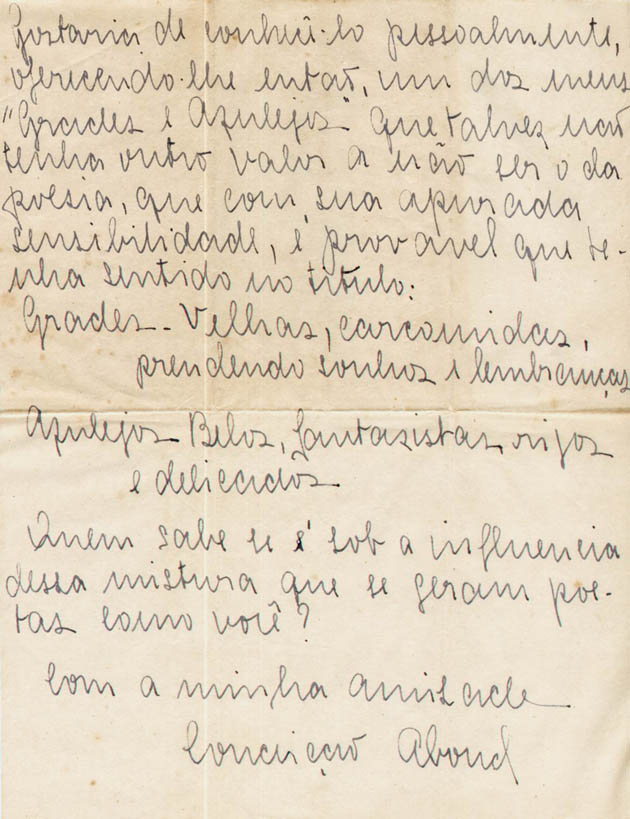 Gostaria de conhecê-lo pessoalmente,
oferecendo-lhe então, um dos meus
"Grades e Azulejos" que talvez não
tenha outro valor a não ser o da
poesia, que com sua apurada
sensibilidade, é provavel que te-
nha sentido no titulo:
Grades - Velhas, carcomidas,
prendendo sonhos e lembranças
Azulejos - Belos, fantasistas, rijos
e delicados
Quem sabe se é sob a influencia
dessa mistura que se geram poe-
tas como você?
Com a minha amisade
Conceição Aboud